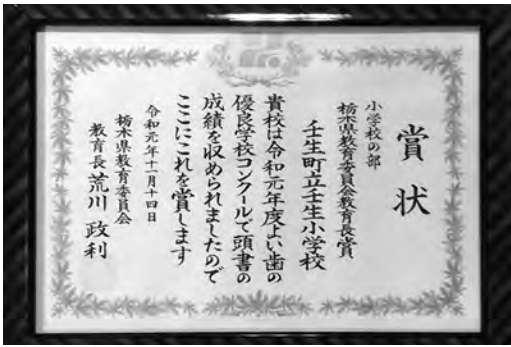 賞状
小学校の部
栃木県教育委員会教育長賞
壬生町立壬生小学校
貴校は令和元年度よい歯の
優良学校コンクールで頭書の
成績を収められましたので
ここにこれを賞します
令和元年十一月十四日
栃木県教育委員会
教育長 荒川 政利